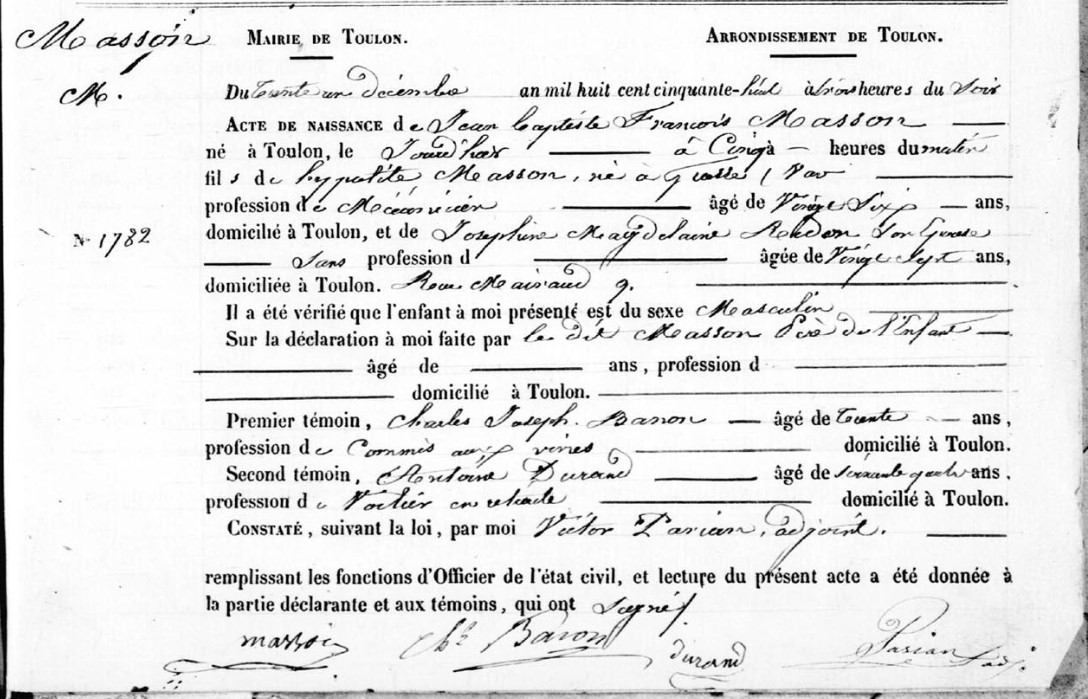 Masson
MAIRIE DE TOULON. ARRONDISSEMENT DE TOULON.
M.
Du trente un décembre an mil huit cent cinquante-huit à trois heures du Soir
ACTE DE NAISSANCE de Jean Baptiste François Masson
né à Toulon, le Jour d'hier à Cinq heures du matin
fils de hypolite Masson, né à Grasse (Var
profession de Mécanicien âgé de Vingt Six ans,
N° 1782
domicilié à Toulon, et de Josephine Magdelaine Son Epouse
Sans profession d âgée de Vingt Sept ans,
domiciliée à Toulon. Rue 9.
Il a été vérifié que l'enfant à moi présenté est du sexe Masculin
Sur la déclaration à moi faite par le dit Masson Père de l'Enfant
âgé de ans, profession d
domicilié à Toulon.
Premier témoin, Charles Joseph Baron âgé de trente ans,
profession de Commis aux vivres domicilié à Toulon.
Second témoin, Antoine Durand âgé de soixante quatre ans,
profession de Voilier en retraite domicilié à Toulon.
CONSTATÉ, suivant la loi, par moi Victor Parian, adjoint.
remplissant les fonctions d'Officier de l'état civil, et lecture du présent acte a été donnée à
la partie déclarante et aux témoins, qui ont signé
masson Ch. Baron durand Parian adj.